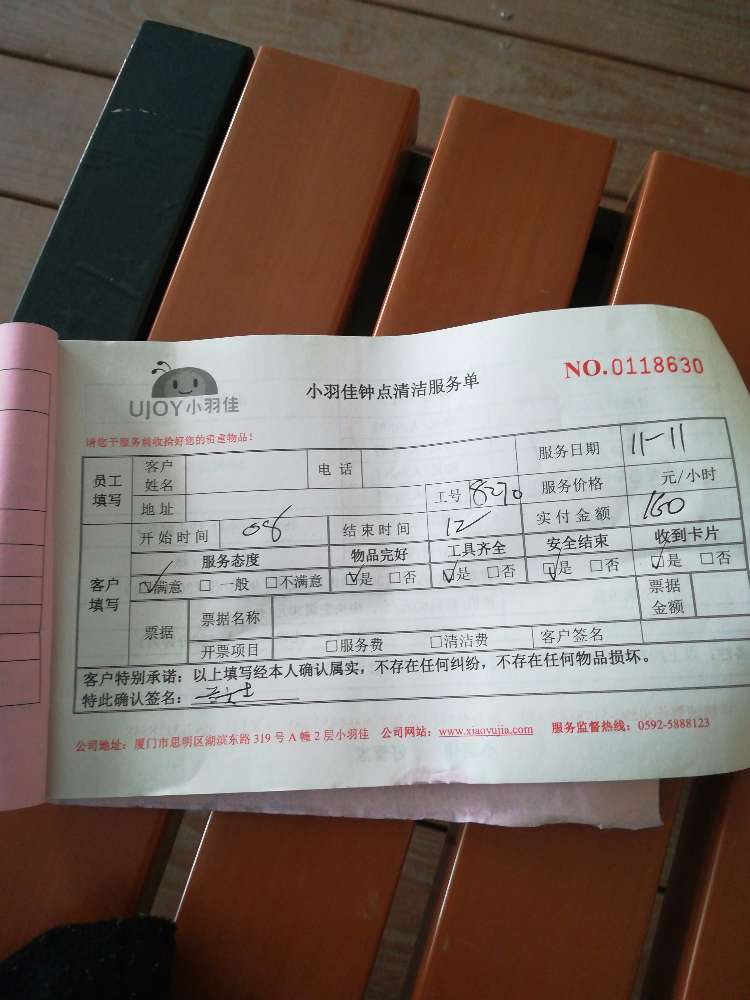 UJOY小羽佳
小羽佳钟点清洁服务单
NO.0118630
请您于服务前收拾好您的贵重物品！
员工填写 客户姓名 电话 服务日期 11-11
地址 工号 8270 服务价格 元/小时
客户填写 开始时间 08 结束时间 12 实付金额 160
服务态度 物品完好 工具齐全 安全结束 收到卡片
☑满意 □一般 □不满意 ☑是 □否 ☑是 □否 ☑是 □否 ☑是 □否
票据 票据名称 票据金额
开票项目 □服务费 □清洁费 客户签名
客户特别承诺：以上填写经本人确认属实，不存在任何纠纷，不存在任何物品损坏。
特此确认签名：
公司地址：厦门市思明区湖滨东路 319 号 A 幢 2 层小羽佳 公司网站：www.xiaoyujia.com 服务监督热线：0592-5888123